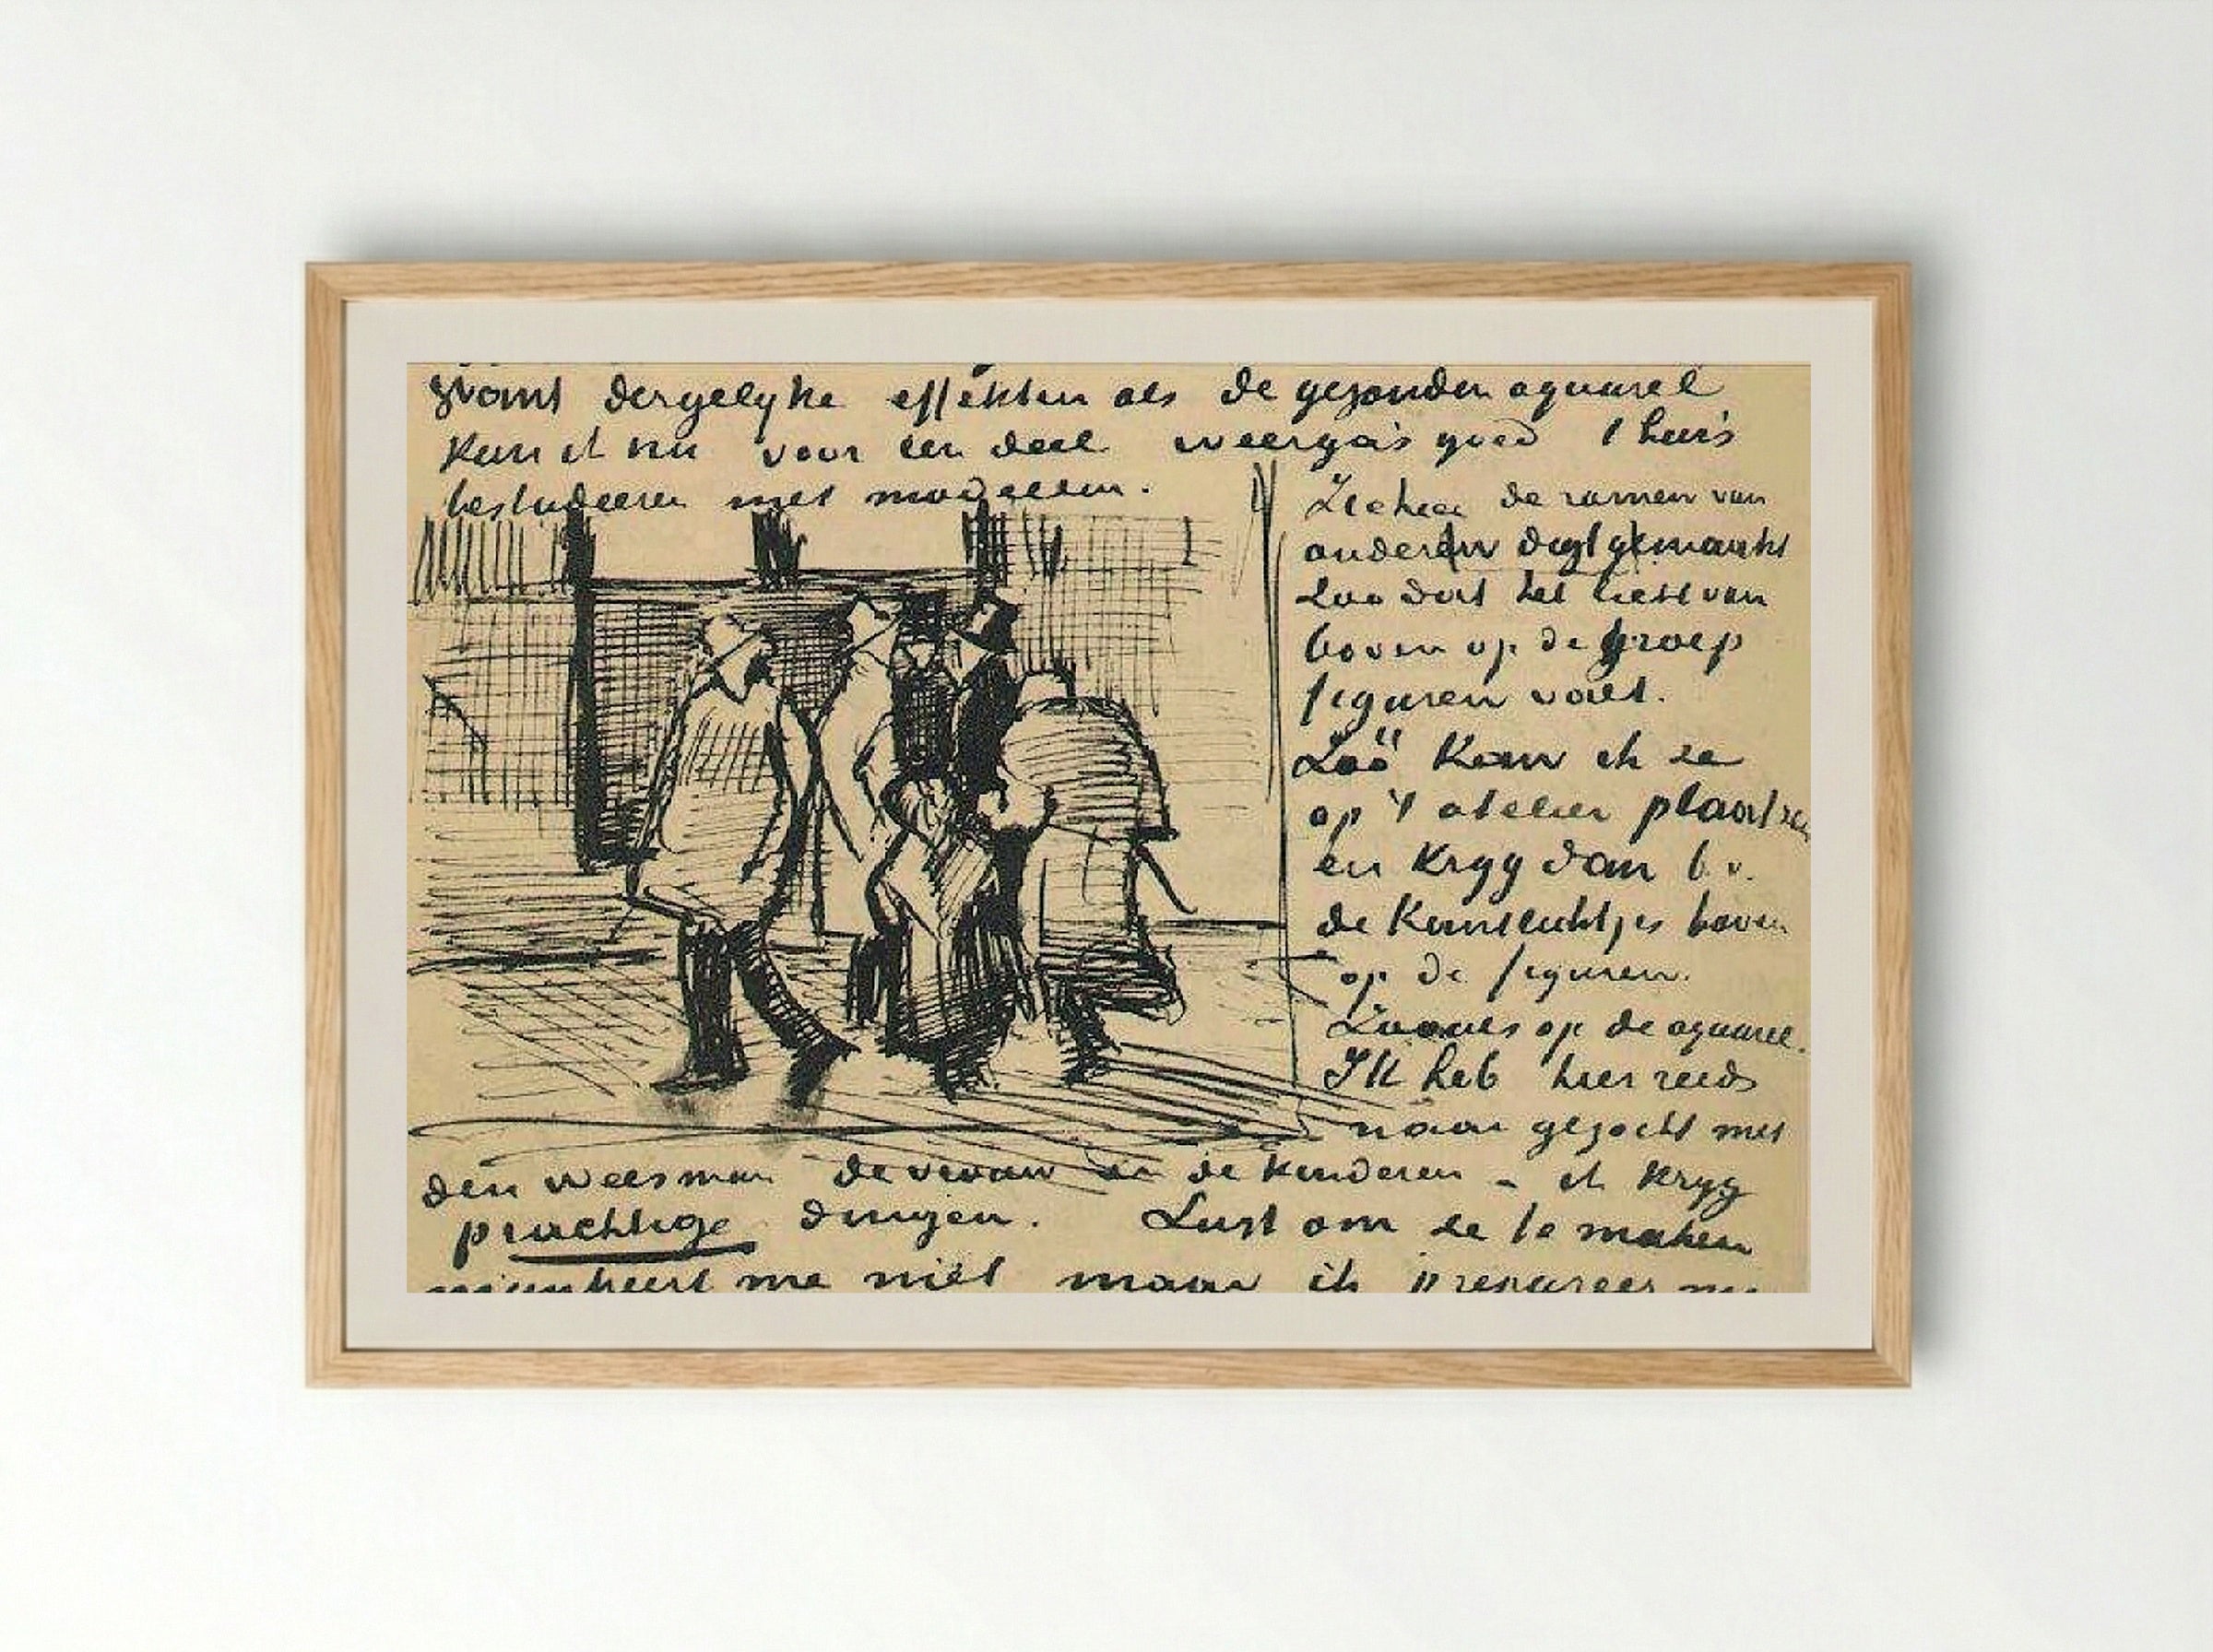 want dergelyke effekten als de gezonden aquarel
Kan ik nu voor een deel weergas goed t huis
bestudeeren met modellen.
Zie hier de ramen van
onderen digt gemaakt
Zoo dat het licht van
boven op de groep
figuren valt.
Zoö Kan ik ze
op 't atelier plaatsen
en Kryg dan b.v.
de Kantlichtjes boven
op de figuren.
Zooals op de aquarel.
Ik heb hier reeds
naar gezocht met
den weesman de vrouw en de kinderen – ik Kryg
prachtige dingen. Lust om ze te maken
mankeert me niet maar ik prepareer my